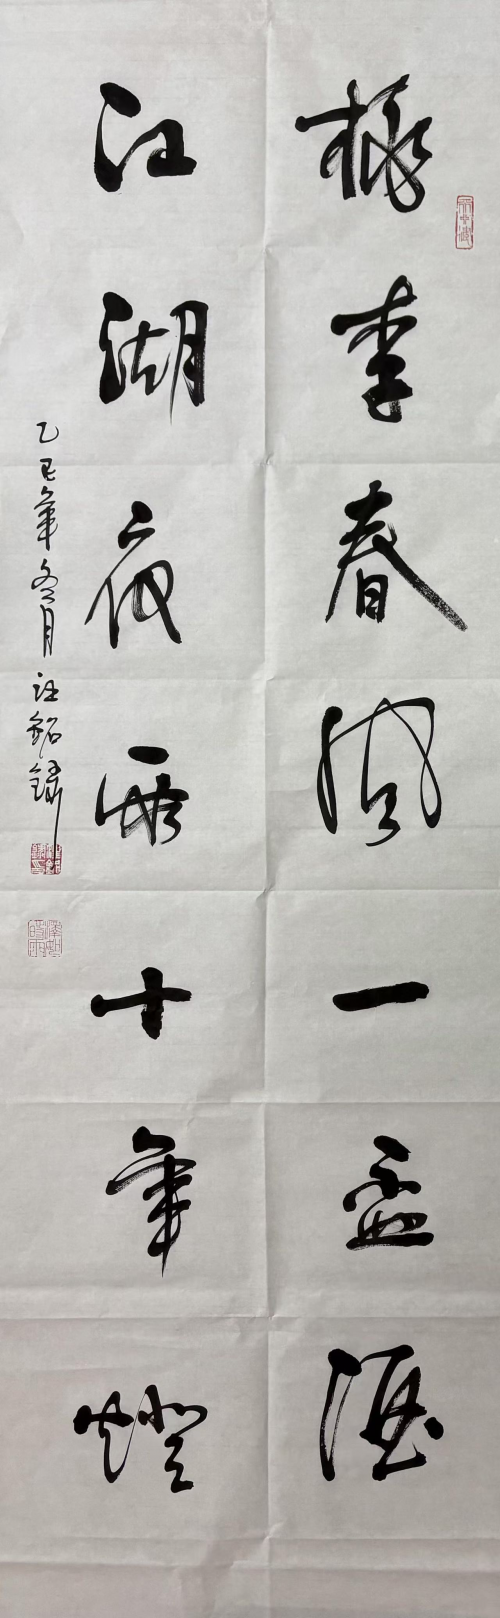 桃李春风一盃酒
江湖夜雨十年燈
乙巳年冬月汪銘鏽